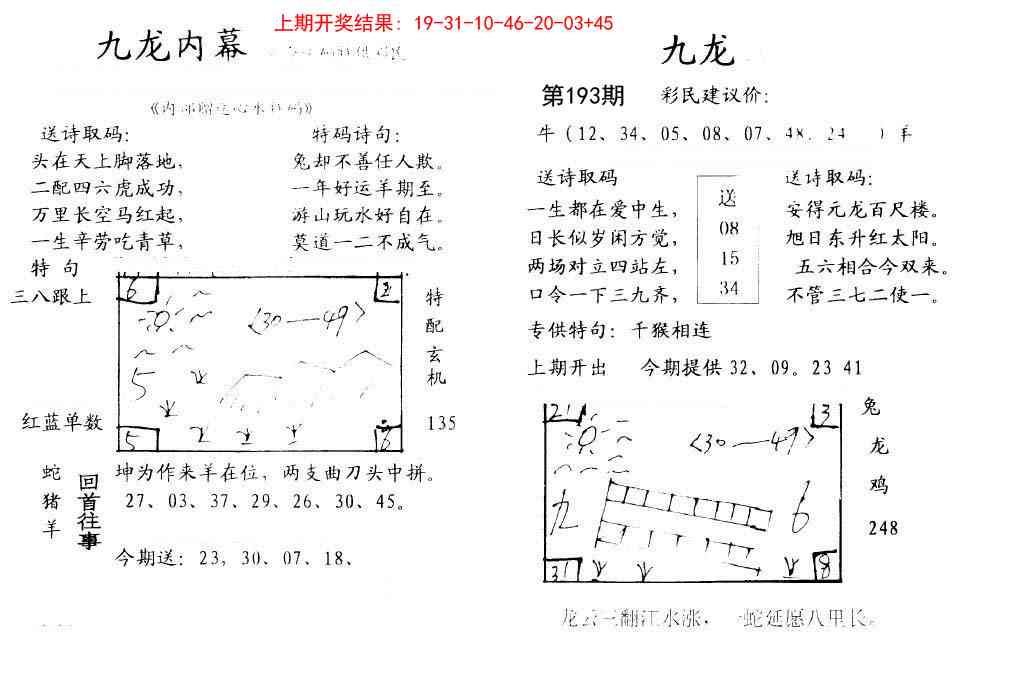 上期开奖结果：19-31-10-46-20-03+45
九龙内幕
送诗取码：
头在天上脚落地，
二配四六虎成功，
万里长空马红起，
一生辛劳吃青草，
特码诗句：
兔却不善任人欺。
一年好运羊期至。
游山玩水好自在。
莫道一二不成气。
特 句
三八跟上
红蓝单数
6
2
<30——49>
5
5
6
特
配
玄
机
135
蛇
猪
羊
回首往事
坤为作来羊在位，两支曲刀头中拼。
27、03、37、29、26、30、45。
今期送：23，30、07、18、
九龙
第193期
彩民建议价：
牛（12、34、05、08、07、48、24 ）羊
送诗取码
一生都在爱中生，
日长似岁闲方觉，
两场对立四站左，
口令一下三九齐，
送
08
15
34
送诗取码：
安得元龙百尺楼。
旭日东升红太阳。
五六相合今双来。
不管三七二使一。
专供特句：千猴相连
上期开出 今期提供32、09。23 41
21
3
<30——49>
九
6
31
8
兔
龙
鸡
248
龙云三翻江水涨，一蛇延愿八里长。